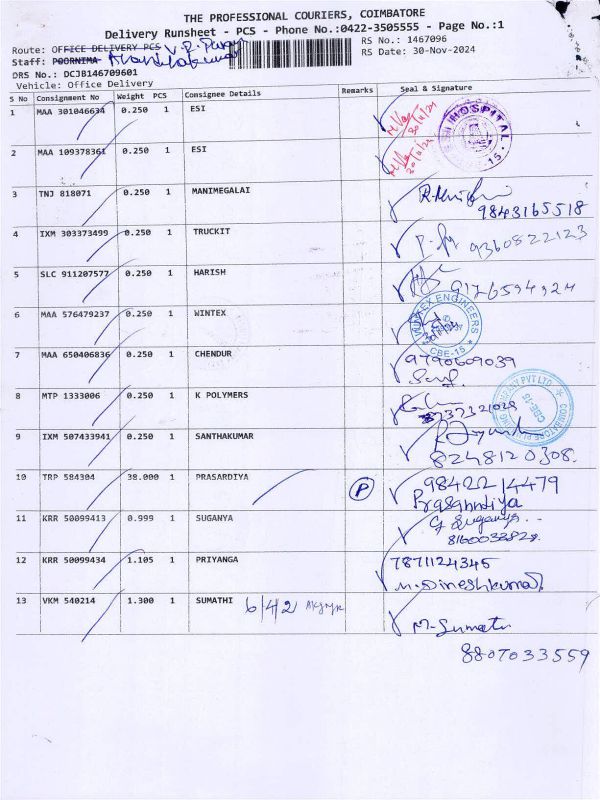 THE PROFESSIONAL COURIERS, COIMBATORE
Delivery Runsheet - PCS - Phone No.:0422-3505555 - Page No.:1
Route: OFFICE DELIVERY PCS V.P. RS No.: 1467096
Staff: POORNIMA RS Date: 30-Nov-2024
DRS No.: DCJB146709601
Vehicle: Office Delivery
S No Consignment No Weight PCS Consignee Details Remarks Seal & Signature
1 MAA 301046634 0.250 1 ESI HOSPITAL
2 MAA 109378361 0.250 1 ESI 15
3 TNJ 818071 0.250 1 MANIMEGALAI
9843165518
4 IXM 303373499 0.250 1 TRUCKIT 9360822123
5 SLC 911207577 0.250 1 HARISH 9176594924
6 MAA 576479237 0.250 1 WINTEX WINTEX ENGINEERS CBE-15
7 MAA 650406836 0.250 1 CHENDUR 9790609039
8 MTP 1333006 0.250 1 K POLYMERS COIMBATORE PVT LTD CBE-15
9 IXM 507433941 0.250 1 SANTHAKUMAR
8248120308.
10 TRP 584304 38.000 1 PRASARDIYA P 9842214479
Prasanndiya
11 KRR 50099413 0.999 1 SUGANYA G Suganya
12 KRR 50099434 1.105 1 PRIYANGA 7871124345
M. Dineshkumar
13 VKM 540214 1.300 1 SUMATHI 6/4/2
M. Sumathi
8807033559